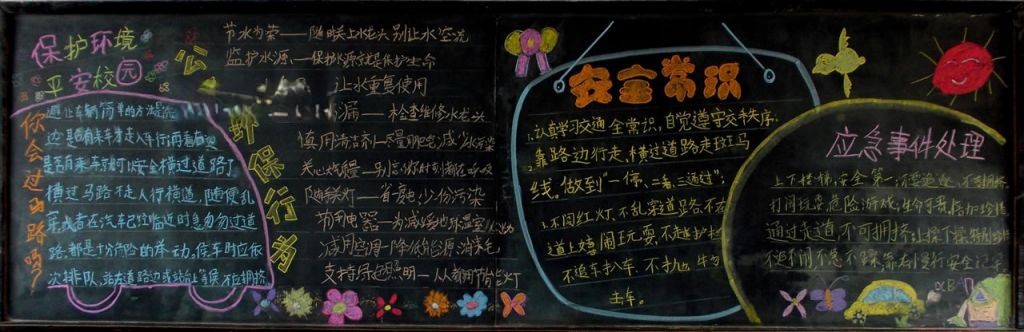 保护环境
平安校园
你会过马路吗?
避让车辆简单的办法是
这是有车来
是否有来车就可以安全横过道路了
横过马路不走人行横道,随便乱
或者在汽车已经临近时急匆匆过道
路.都是十分危险的举动.侯车时应依
次排队,站在道路边或站台上等候
公
环保行为
节水为荣——随时关上水龙头别让水空流
监护水源——保护水源就是保护生命
让水重复使用
漏——检查维修水龙头
慎用清洁剂——尽量用肥皂,减少水污染
关心大气质量——别忘
随手关灯——省度电,少份污染
节用电器——为减缓地球温室
减用空调——降低能源消耗
支持绿色照明——人人都用节能灯
安全常识
1.认真学习交通安全常识,自觉遵守交通秩序.
靠路边行走,横过道路走斑马
线.做到“一停,二看,三通过”;
不闯红灯,不乱穿道路.不在
道上嬉闹玩耍,不越护栏
不追车扒车.不扒
车.
应急事件处理
上下楼梯,安全第一,不要追逐,不要拥挤.
打闹玩耍,危险游戏,生命可贵,倍加珍惜.
通过走道,不可拥挤,上操下操,特别
不追不闹,不急不躁,靠右慢行,安全记牢